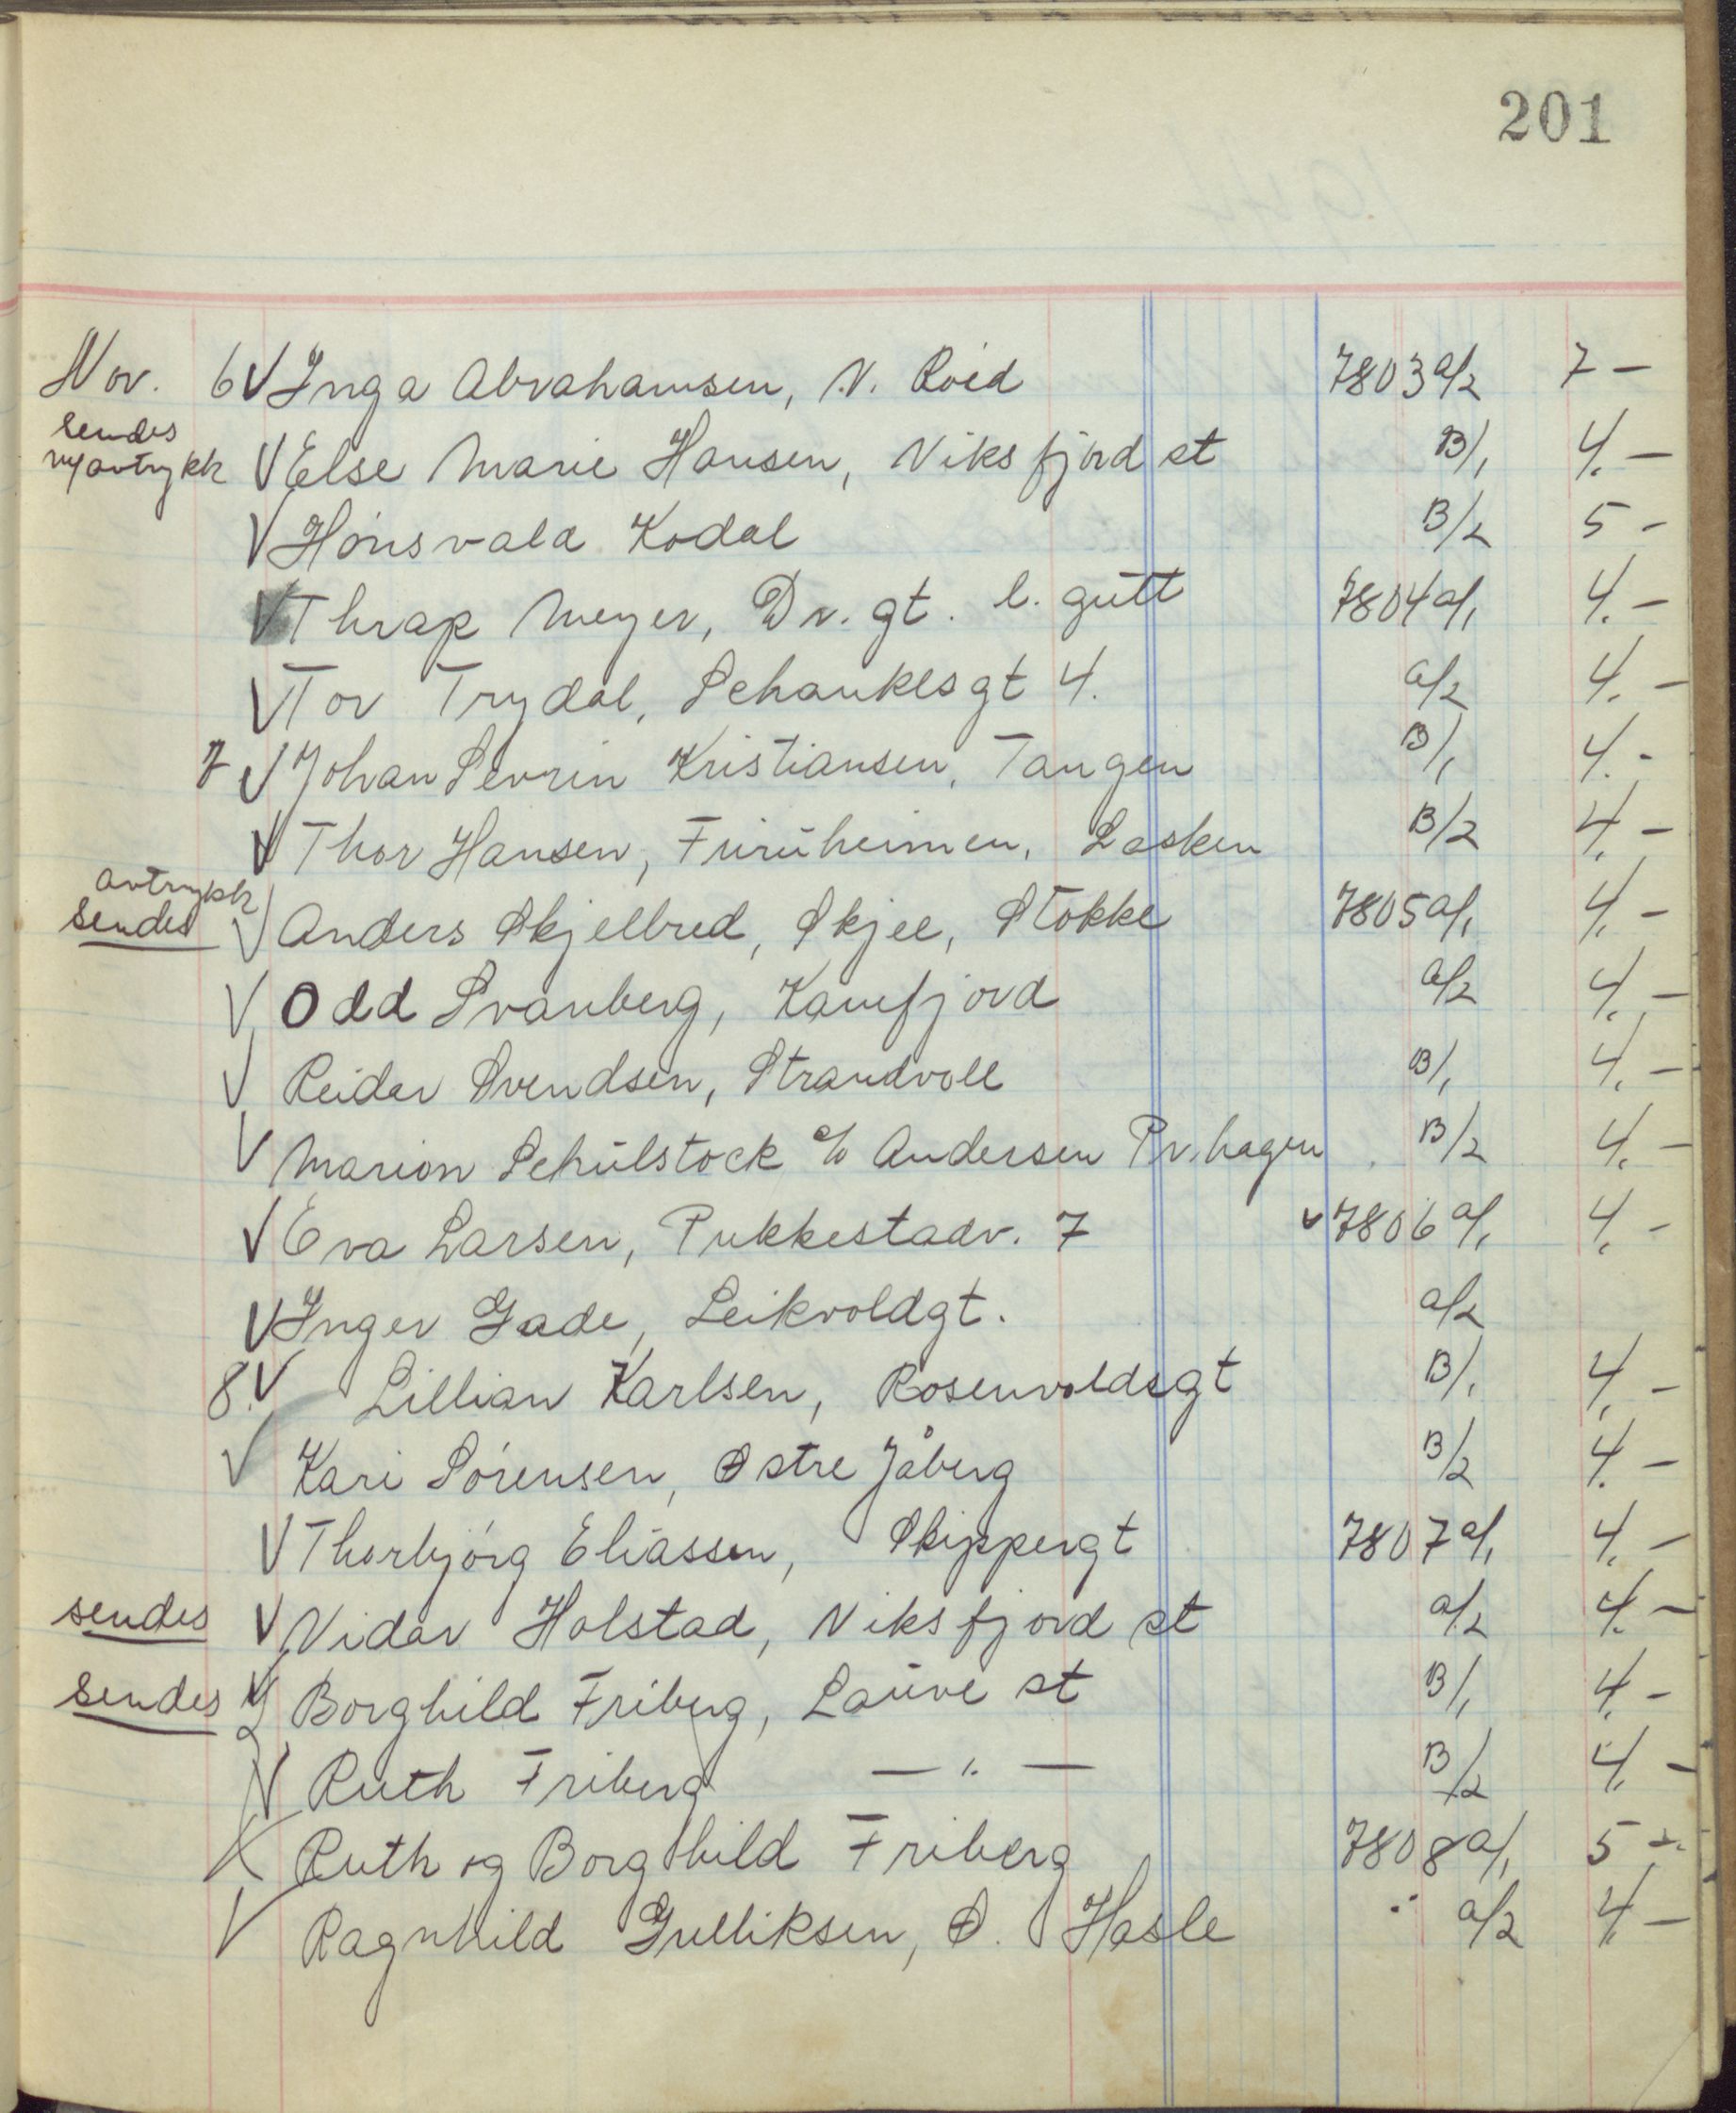 201
Nov. 6 V Inga Abrahamsen, N. Röed 7803 a/2 7 -
sendes
ny avtrykk V Else Marie Hansen, Viksfjord st B/1 4. -
V Hönsvald Kodal B/2 5 -
V Thrap Meyer, Dr. gt. l. gutt 7804 a/1 4. -
V Tor Trydal, Schankesgt 4. a/2 4. -
7 V Johan Sevrin Kristiansen, Tangen B/1 4. -
V Thor Hansen, Furuheimen, Lasken B/2 4. -
avtrykk
sendes V Anders Skjelbred, Skjee, Stokke 7805 a/1 4. -
V Odd Svanberg, Kamfjord a/2 4. -
V Reidar Svendsen, Strandvoll B/1 4. -
V Marion Schulstock c/o Andersen Pr. hagen B/2 4. -
V Eva Larsen, Pukkestadv. 7 v 7806 a/1 4. -
V Inger Gade, Leikvoldgt. a/2
8. V Lillian Karlsen, Rosenvoldsgt B/1 4. -
V Kari Sörensen, Østre Jåberg B/2 4. -
V Thorbjörg Eliassen, Skippergt 7807 a/1 4. -
sendes V Vidar Holstad, Viksfjord st a/2 4. -
sendes V Borghild Friberg, Lauve st B/1 4. -
V Ruth Friberg — " — B/2 4. -
Ruth og Borghild Friberg 7808 a/1 5 -
V Ragnhild Gulliksen, Ø. Hasle a/2 4. -